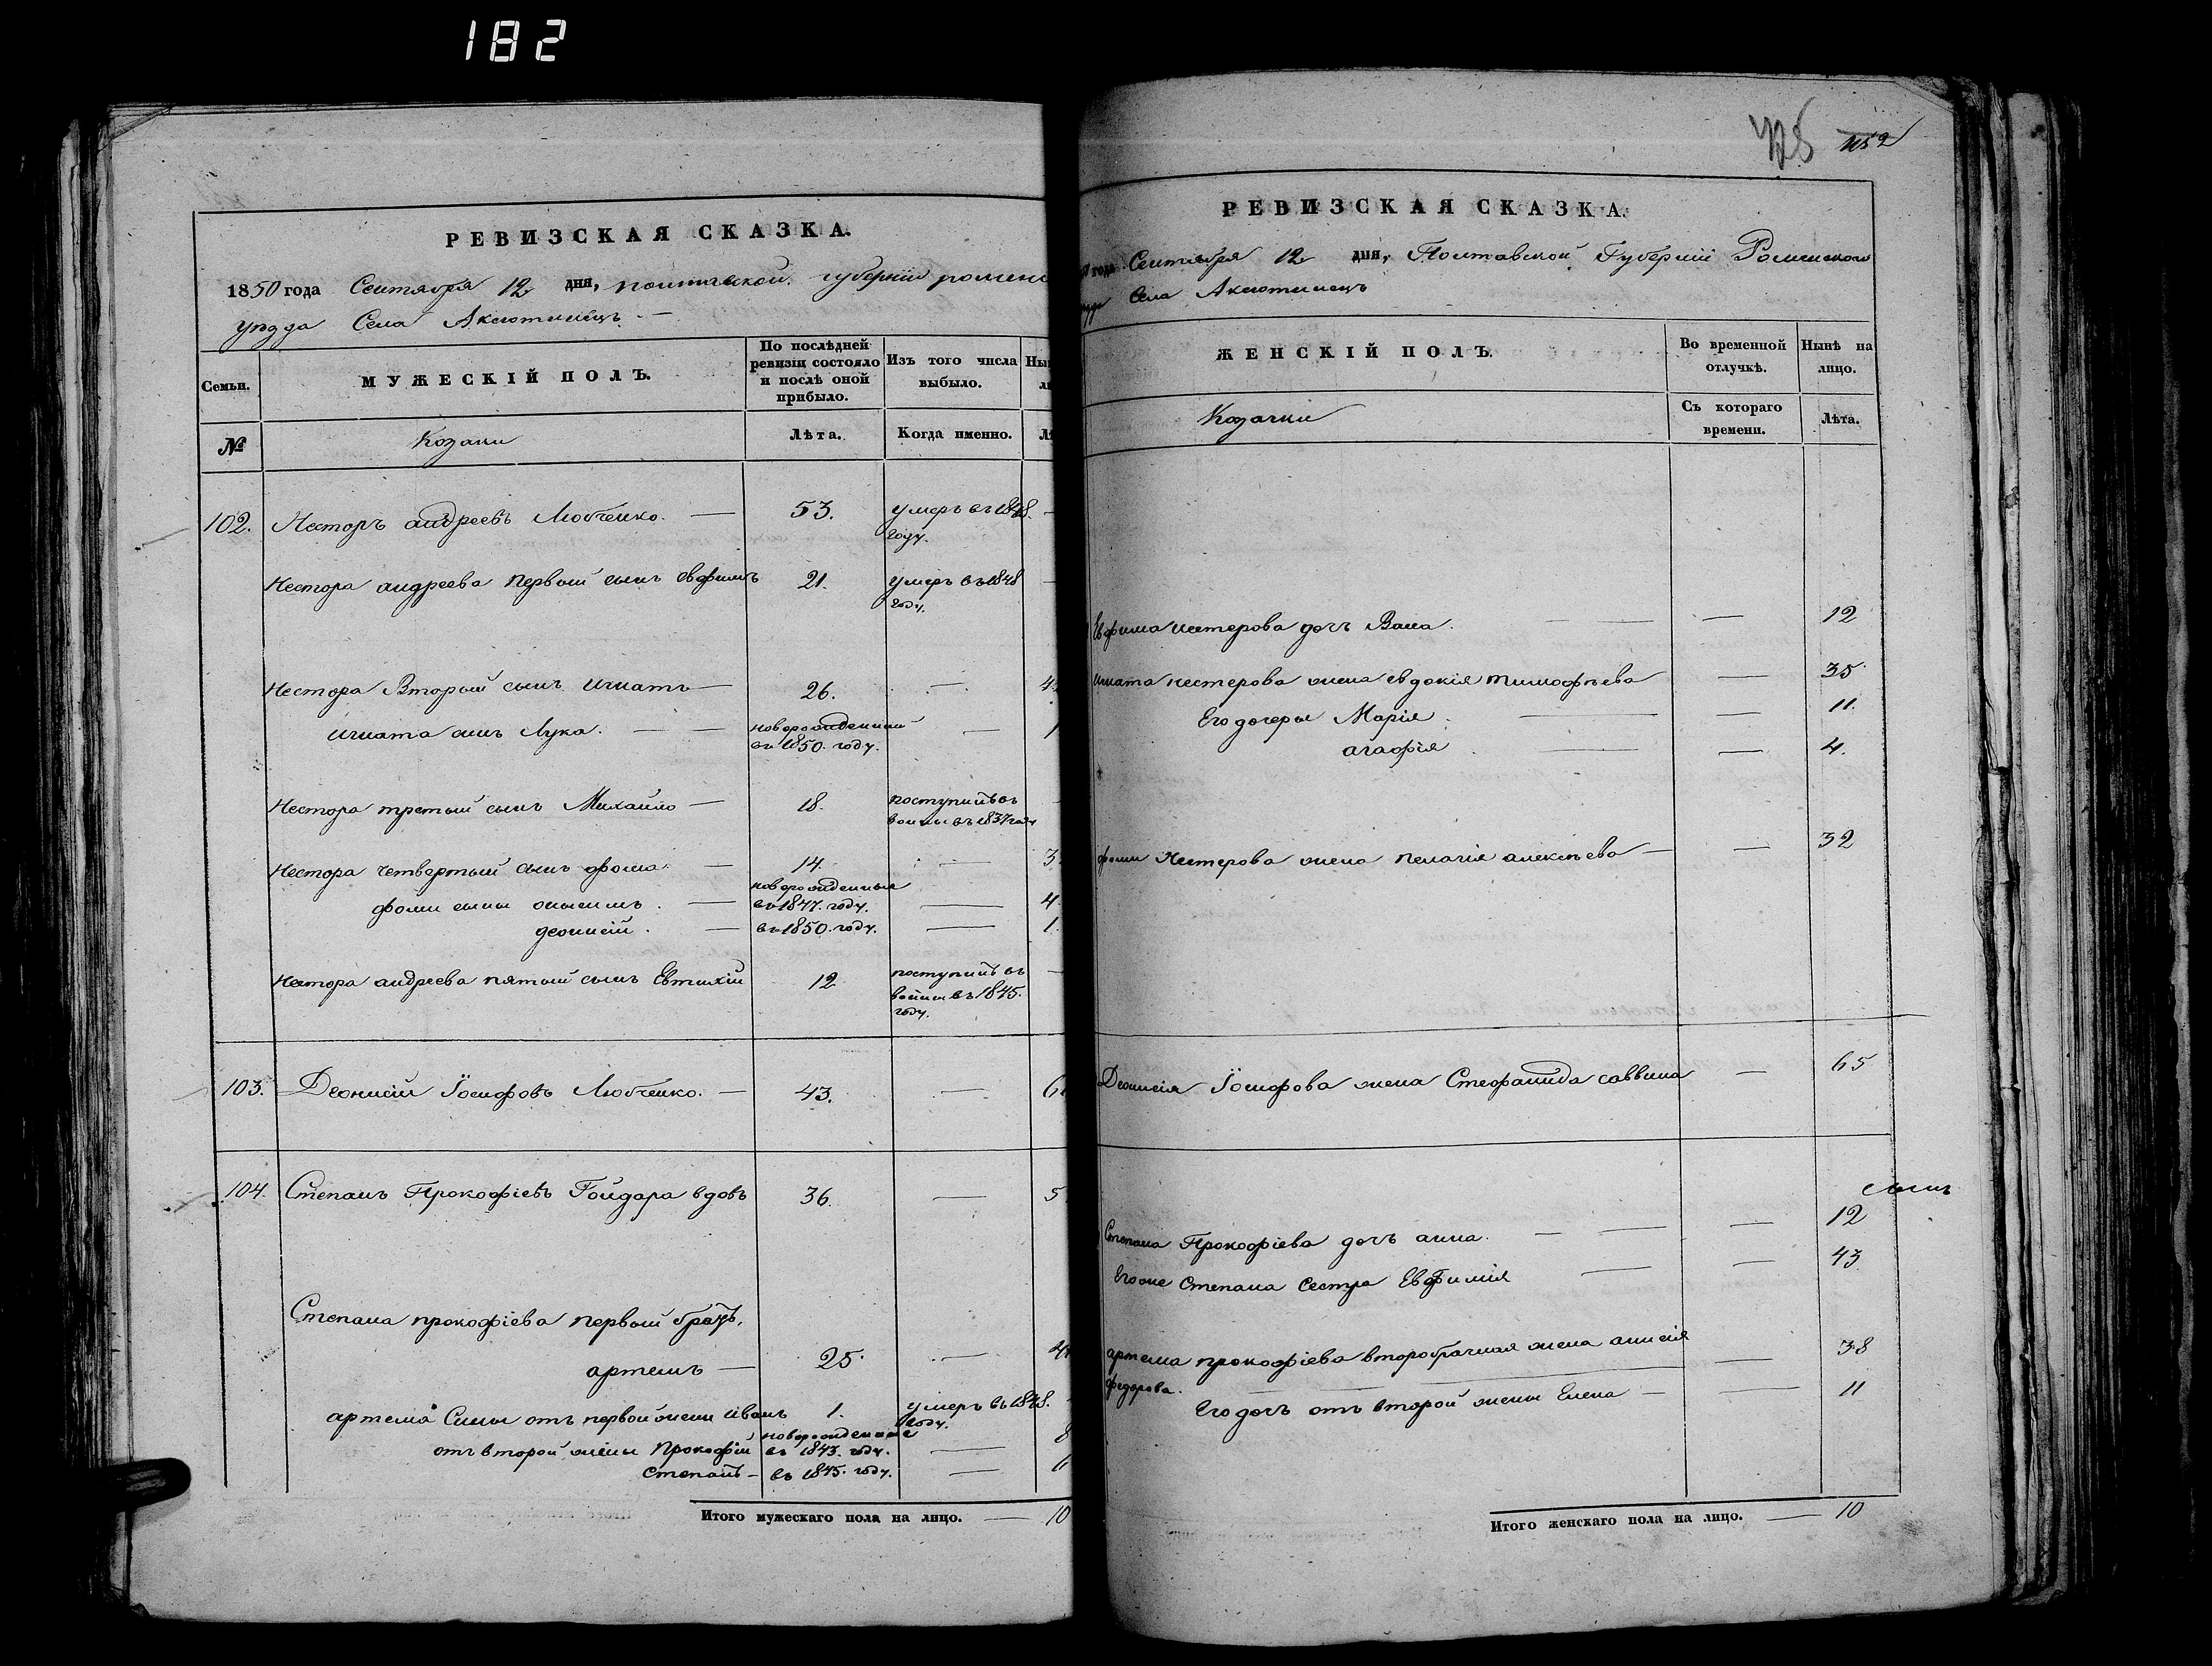 182
РЕВИЗСКАЯ СКАЗКА.
1850 года Сентября 12 дня, полтавской губернiи ромен
уѣзда Села Аксютинецъ
Семьи.
МУЖЕСКІЙ ПОЛЪ.
По послѣдней ревизіи состояло и послѣ оной прибыло.
Изъ того числа выбыло.
№
Козаки
Лѣта.
Когда именно.
102. Несторъ андреевъ Любченко. — 53. умеръ въ 1848. —
году.
Нестора андреева первый сынъ евфимъ 21. умеръ въ 1848 —
году.
Нестора Вторый сынъ игнатъ — 26. —
игната сынъ Лука. — — новорожденный —
въ 1850. году.
Нестора третый сынъ Михайло — 18. поступилъ въ
воины въ 1837 году
Нестора четвертый сынъ фома. — 14. —
новорожденные
фомы сыны онисимъ. — въ 1847. году. — 4
деонисій. — въ 1850. году. — 1.
Нестора андреева пятый сынъ Евтихій 12 поступилъ въ —
воины въ 1845.
году.
103. Деонисій Іосифовъ Любченко. — 43. —
104. Степанъ Прокофіевъ Гойдара вдовъ 36. —
Степана прокофіева первый братъ,
артемъ — 25. —
артема Сыны отъ первой жены иванъ 1. умеръ въ 1848.
году.
новорожденные
отъ второй жены Прокофій въ 1843. году. — 8
степанъ — въ 1845. году. —
Итого мужескаго пола на лицо. — 10
725 152
РЕВИЗСКАЯ СКАЗКА.
года Сентября 12 дня, Полтавской Губерніи Роменского
Села Аксютинецъ
ЖЕНСКІЙ ПОЛЪ.
Во временной отлучкѣ.
Нынѣ на лицо.
Козачки
Съ котораго времени.
Лѣта.
Евфима нестерова дочь Васа. — — 12
игната нестерова жена евдокія тимофѣева — 35
Его дочеры Марія. — — 11.
агафія. — — 4.
фомы Нестерова жена пелагія алексѣева — — 32
Деонисія Іосифова жена Стефанида саввина — 65
Степана Прокофіева дочь анна. — — — 12
Егоже степана сестра Евфимія — — 43
артема прокофіева второбрачная жена анисія — 38
федорова. —
Его дочь отъ второй жены Елена — — 11
Итого женскаго пола на лицо. — 10